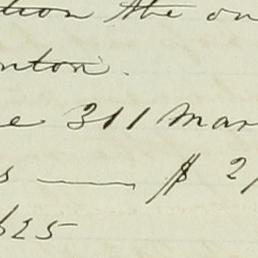 tion the on
nton.
e 311 Mar
s — $ 2
$25